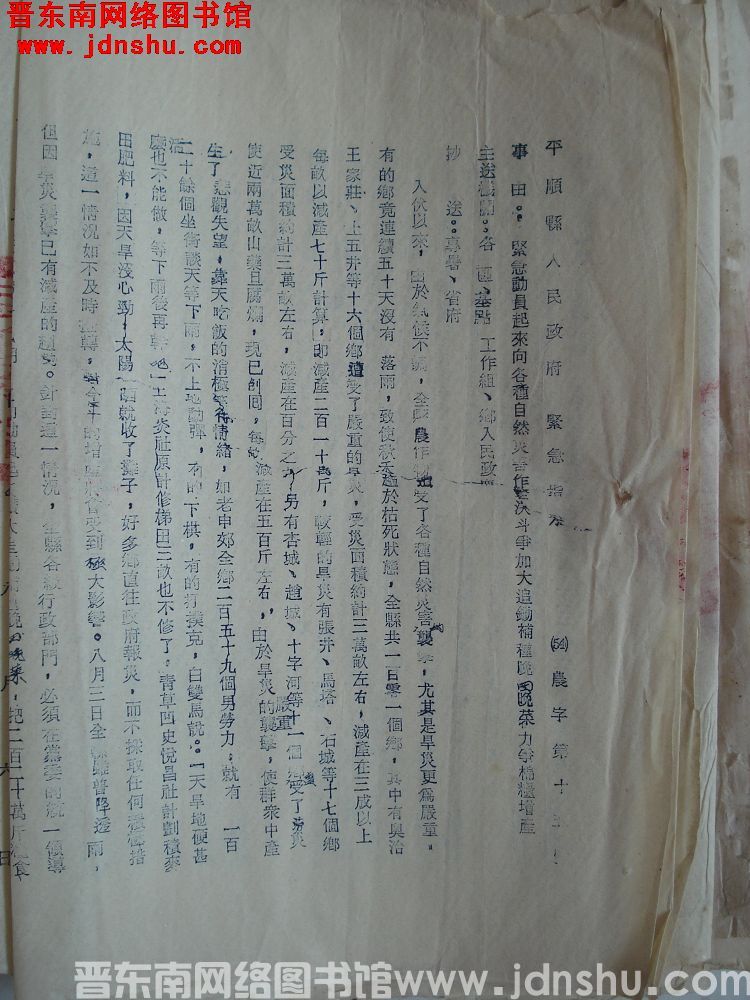 晋东南网络图书馆
www.jdnshu.com
平順縣人民政府緊急指
(54)農字第十
事由：緊急動員起來向各種自然災害作堅決斗爭加大追鋤補種晚田晚菜力爭棉糧增產
主送機關：各區、基點工作組、鄉人民政
抄送：專署、省府
入伏以來，由於氣候不調，全縣農作物遭受了各種自然災害的襲擊，尤其是旱災更為嚴重。
有的鄉竟連續五十天沒有落雨，致使秋禾趨於枯死狀態，全縣共一百零一個鄉，其中有與治
王家莊、上五井等十六個鄉遭受了嚴重的旱災，受災面積約計三萬畝左右，減產在三成以上
每畝以減產七十斤計算，即減產二百一十萬斤，較輕的旱災有張井、馬塔、石城等十七個鄉
受災面積約計三萬畝左右，減產在百分之 另有杏城、趙城、十字河等十一個鄉遭受了嚴重
使近兩萬畝山藥旦腐爛，現已刨回，每畝減產在五百斤左右，由於旱災的襲擊，使群衆中產
生了悲觀失望，靠天吃飯的消極等待情緒，如老申郊全鄉二百五十九個男勞力，就有一百
二十餘個坐街談天等下雨，不上地動彈，有的下棋，有的打撲克，白雙馬說：「天旱地硬甚
麼也不能做，等下雨後再 地」 炎社原計修梯田三畝也不修了，青草凹史悅昌社計劃積麥
田肥料，因天旱沒心勁，太陽一曬就收了攤子，好多鄉直往政府報災，而不採取任何 措
施，這一情況如不及時扭轉，對今年的增產將會受到極大影響。八月三日全縣雖普降透雨，
但因旱災襲擊已有減產的趨勢。針對這一情況，全縣各級行政部門，必須在黨委的統一領導
晚田晚菜，把二百一十萬斤糧食
月六日
晋东南网络图书馆www.jdnshu.com